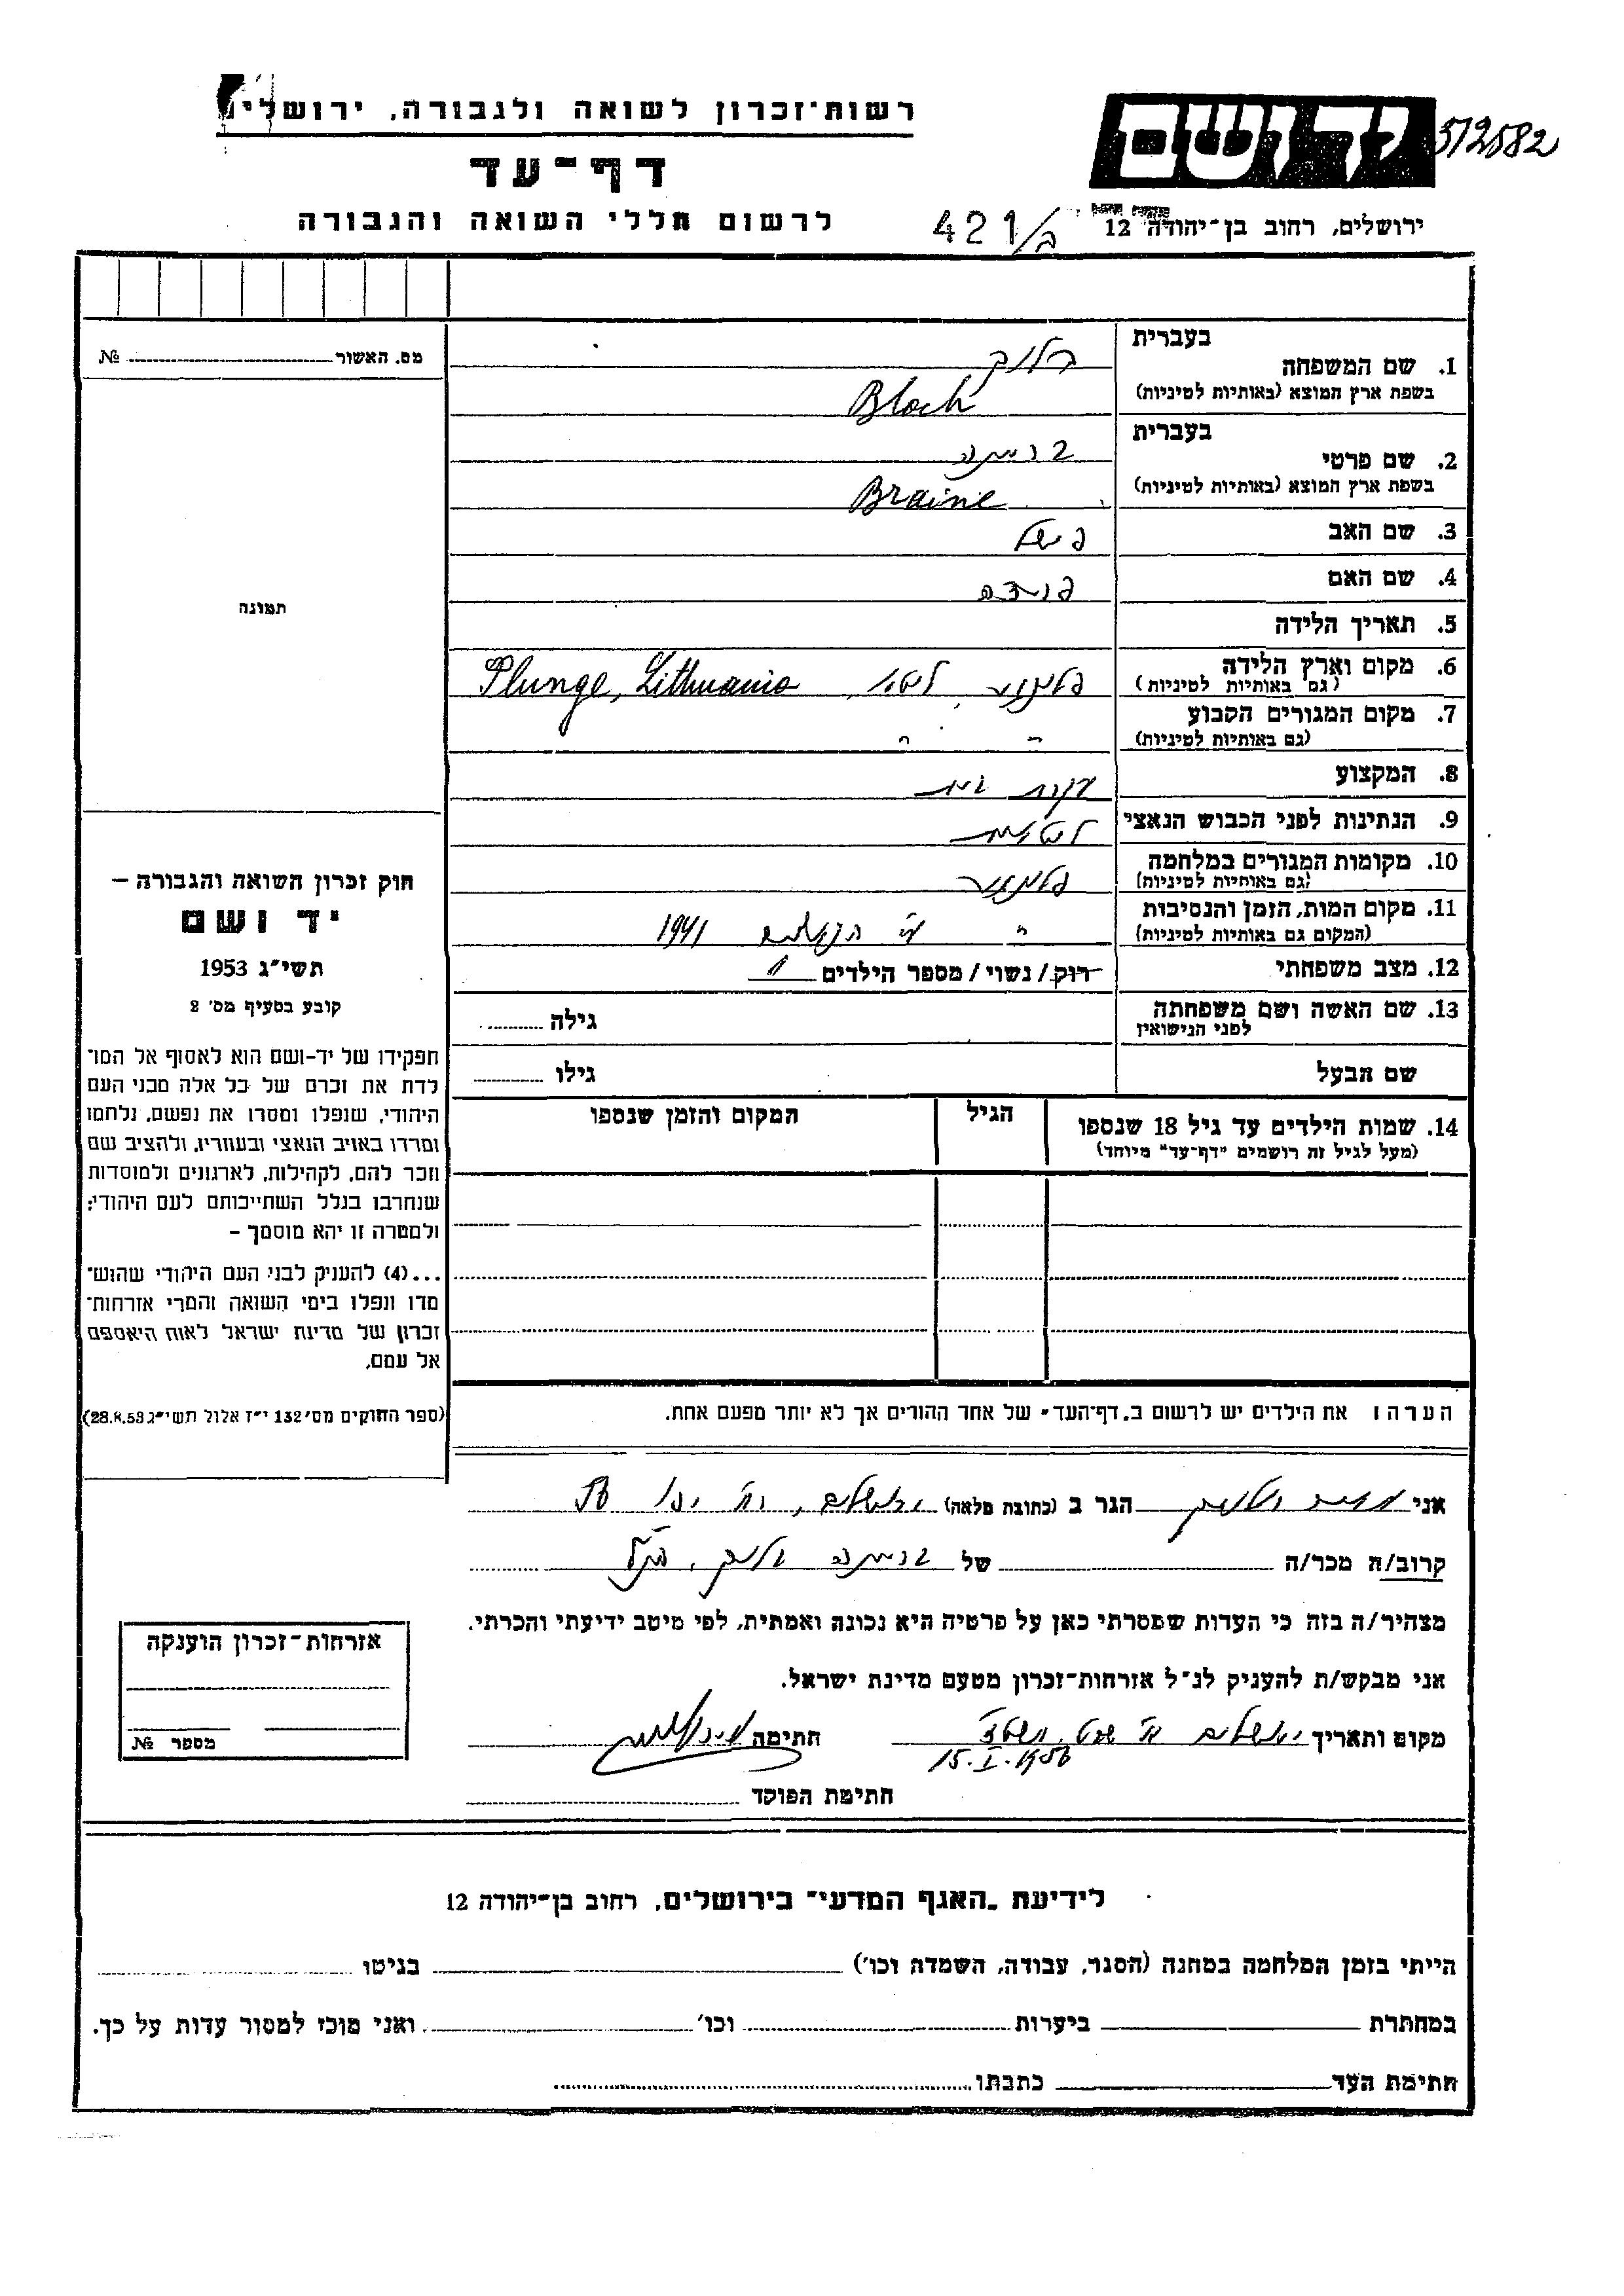 רשות־זכרון לשואה ולגבורה, ירושלים
יד ושם
512582
דף־עד
לרשום חללי השואה והגבורה
421/ב
ירושלים, רחוב בן־יהודה 12
בעברית
1. שם המשפחה בלוך
בשפת ארץ המוצא (באותיות לטיניות) Bloch
בעברית
2. שם פרטי בריינה
בשפת ארץ המוצא (באותיות לטיניות) Braine
3. שם האב
4. שם האם
5. תאריך הלידה
6. מקום וארץ הלידה פלונגיאן, ליטא, Plunge, Lithuania
(גם באותיות לטיניות)
7. מקום המגורים הקבוע " "
(גם באותיות לטיניות)
8. המקצוע עקרת בית
9. הנתינות לפני הכבוש הנאצי ליטאית
10. מקומות המגורים במלחמה
(גם באותיות לטיניות)
11. מקום המות, הזמן והנסיבות " ע״י הנאצים 1941
(המקום גם באותיות לטיניות)
12. מצב משפחתי רוק/נשוי/מספר הילדים 1
13. שם האשה ושם משפחתה גילה
לפני הנישואין
שם הבעל גילו
14. שמות הילדים עד גיל 18 שנספו הגיל המקום והזמן שנספו
(מעל לגיל זה רושמים "דף־עד" מיוחד)
מס. האשור №
תמונה
חוק זכרון השואה והגבורה –
יד ושם
תשי״ג 1953
קובע בסעיף מס׳ 2
תפקידו של יד-ושם הוא לאסוף אל המו־
לדת את זכרם של כל אלה מבני העם
היהודי, שנפלו ומסרו את נפשם, נלחמו
ומרדו באויב הנאצי ובעוזריו, ולהציב שם
וזכר להם, לקהילות, לארגונים ולמוסדות
שנחרבו בגלל השתייכותם לעם היהודי;
ולמטרה זו יהא מוסמך –
...(4) להעניק לבני העם היהודי שהוש־
מדו ונפלו בימי השואה והמרי אזרחות־
זכרון של מדינת ישראל לאות היאספם
אל עמם.
(ספר החוקים מס׳ 132 י״ז אלול תשי״ג 28.8.53)
הערה: את הילדים יש לרשום ב„דף־העד" של אחד ההורים אך לא יותר מפעם אחת.
אני הגר ב (כתובת מלאה) ירושלים, רח׳
קרוב/ה מכר/ה של בריינה בלוך, הנ״ל
מצהיר/ה בזה כי העדות שמסרתי כאן על פרטיה היא נכונה ואמתית, לפי מיטב ידיעתי והכרתי.
אני מבקש/ת להעניק לנ״ל אזרחות־זכרון מטעם מדינת ישראל.
מקום ותאריך ירושלים חתימה
15.I.1956
חתימת הפוקד
אזרחות־זכרון הוענקה
מספר №
לידיעת „האגף המדעי" בירושלים, רחוב בן־יהודה 12
הייתי בזמן המלחמה במחנה (הסגר, עבודה, השמדה וכו׳) בגיטו
במחתרת ביערות וכו׳ ואני מוכן למסור עדות על כך.
חתימת העד כתבתו